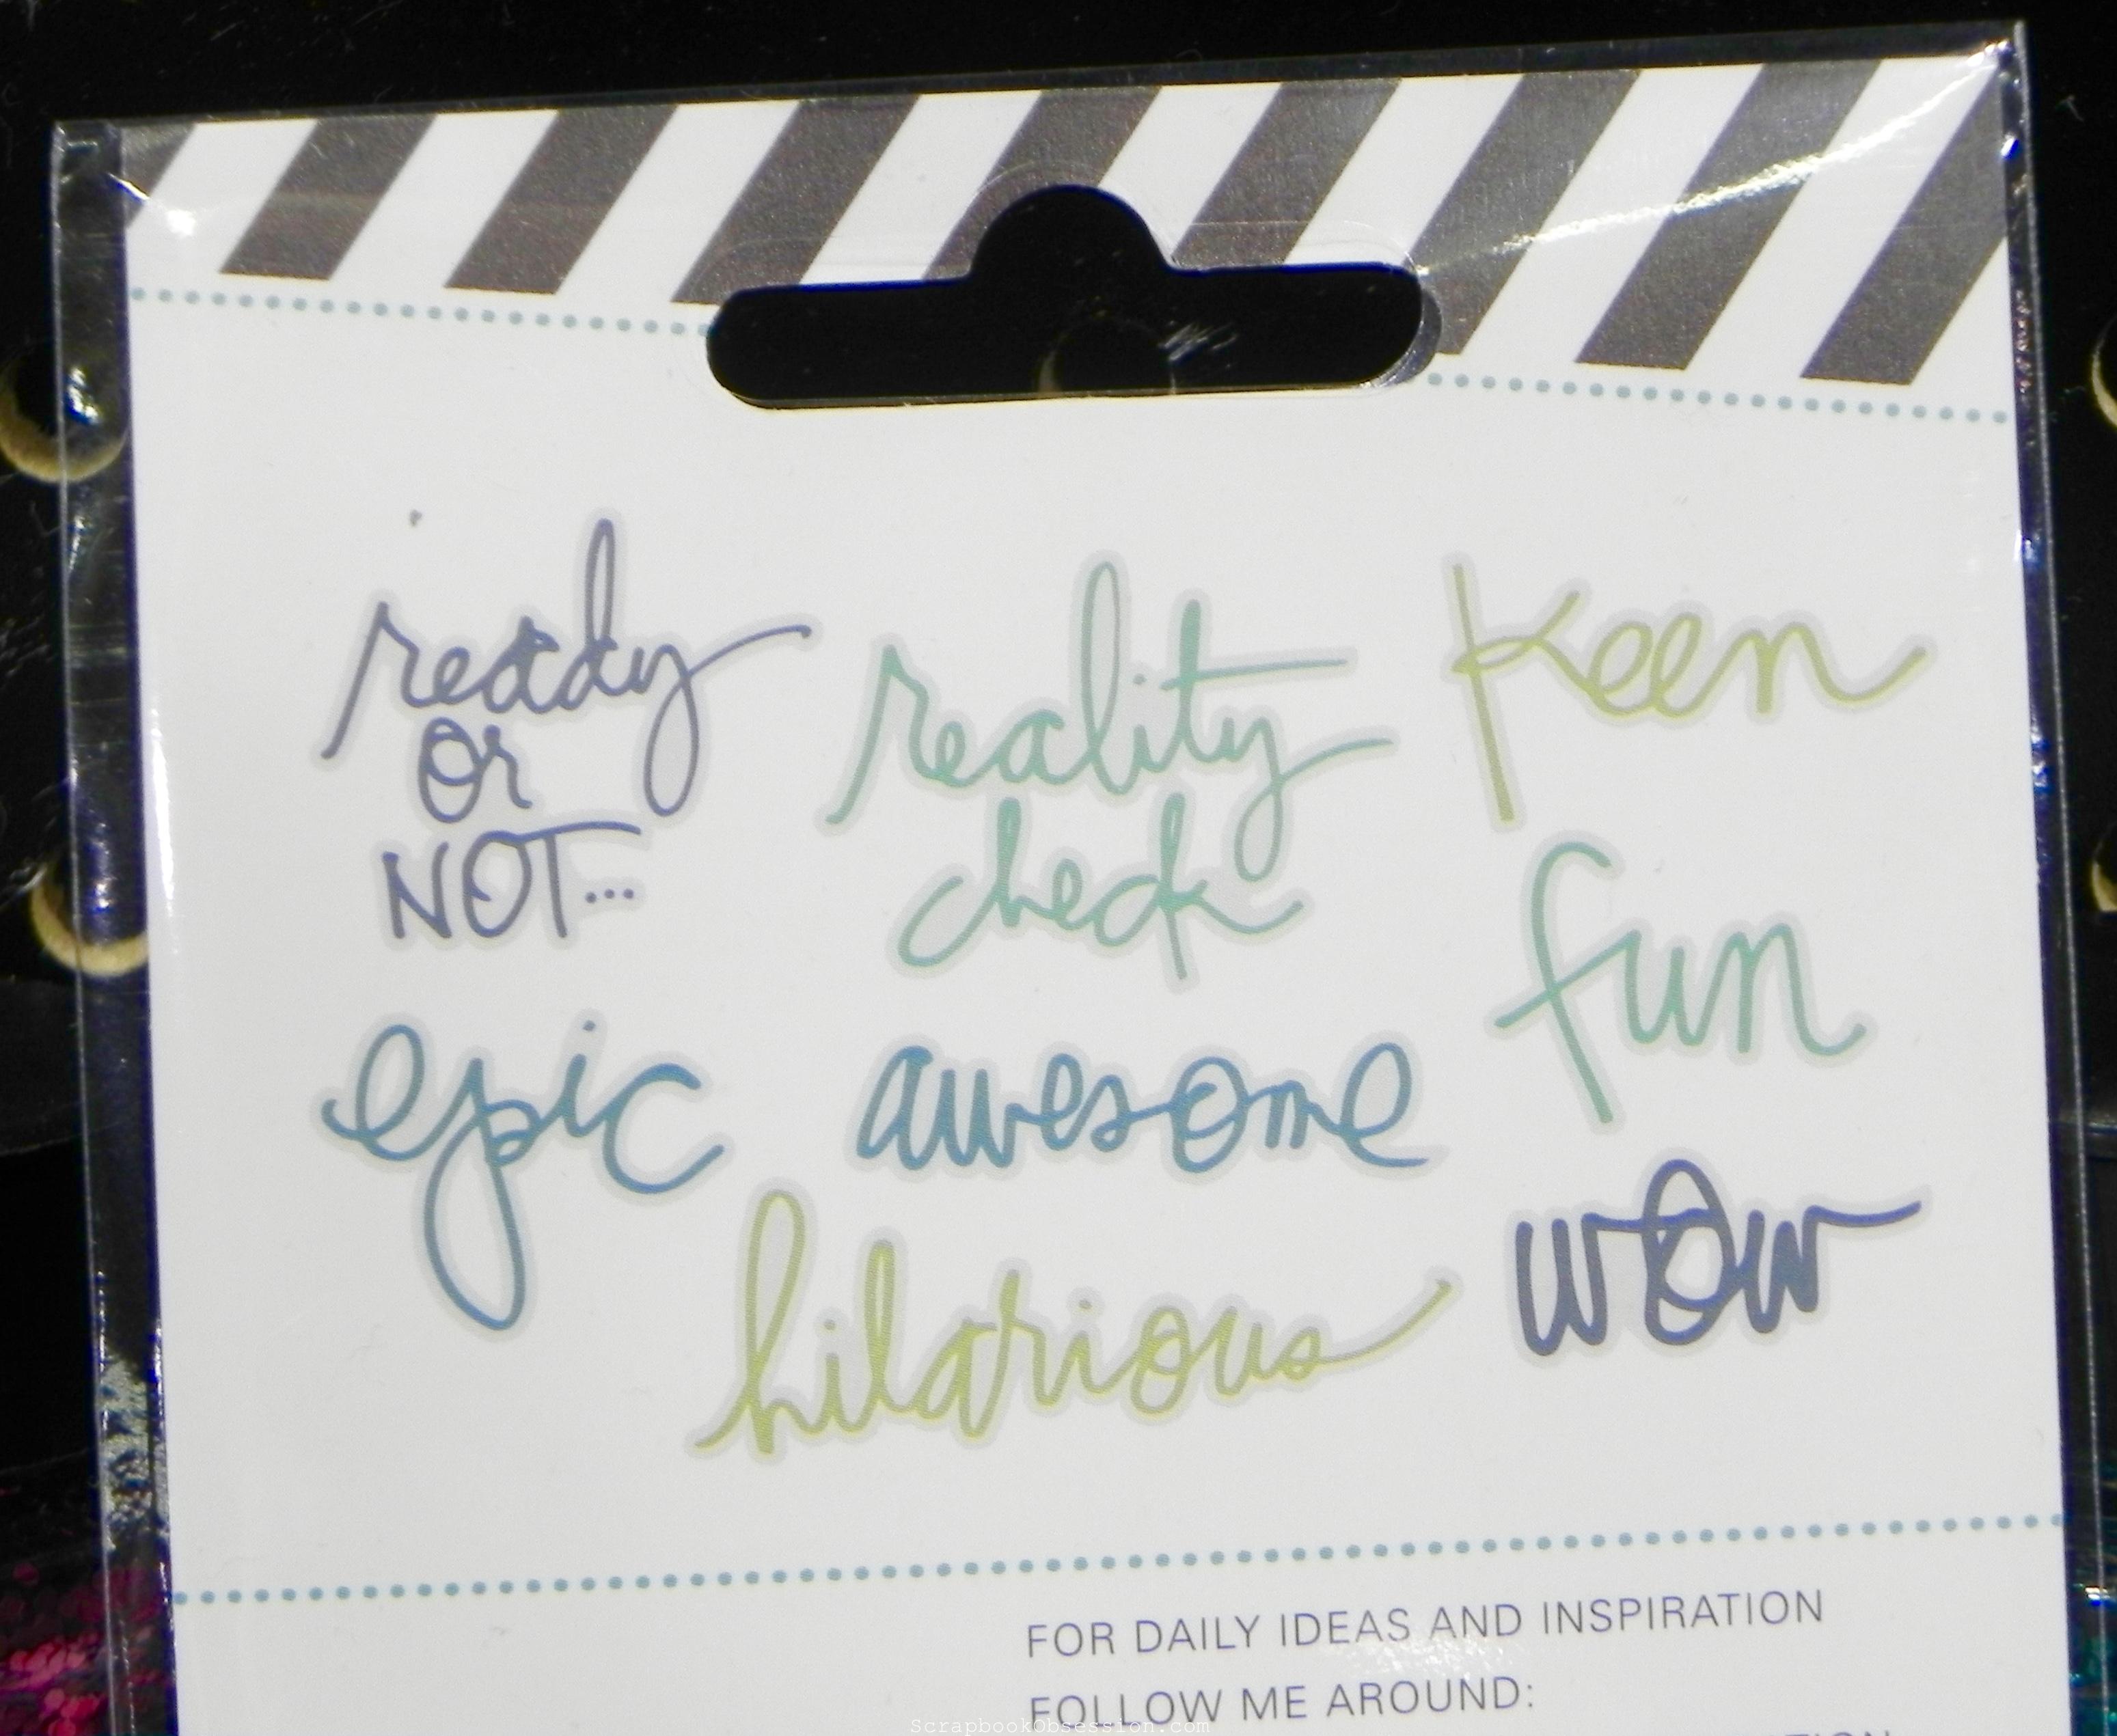 ready
or
NOT...
reality
check
Keen
fun
epic
awesome
wow
hilarious
FOR DAILY IDEAS AND INSPIRATION
FOLLOW ME AROUND:
ScrapbookObsession.com